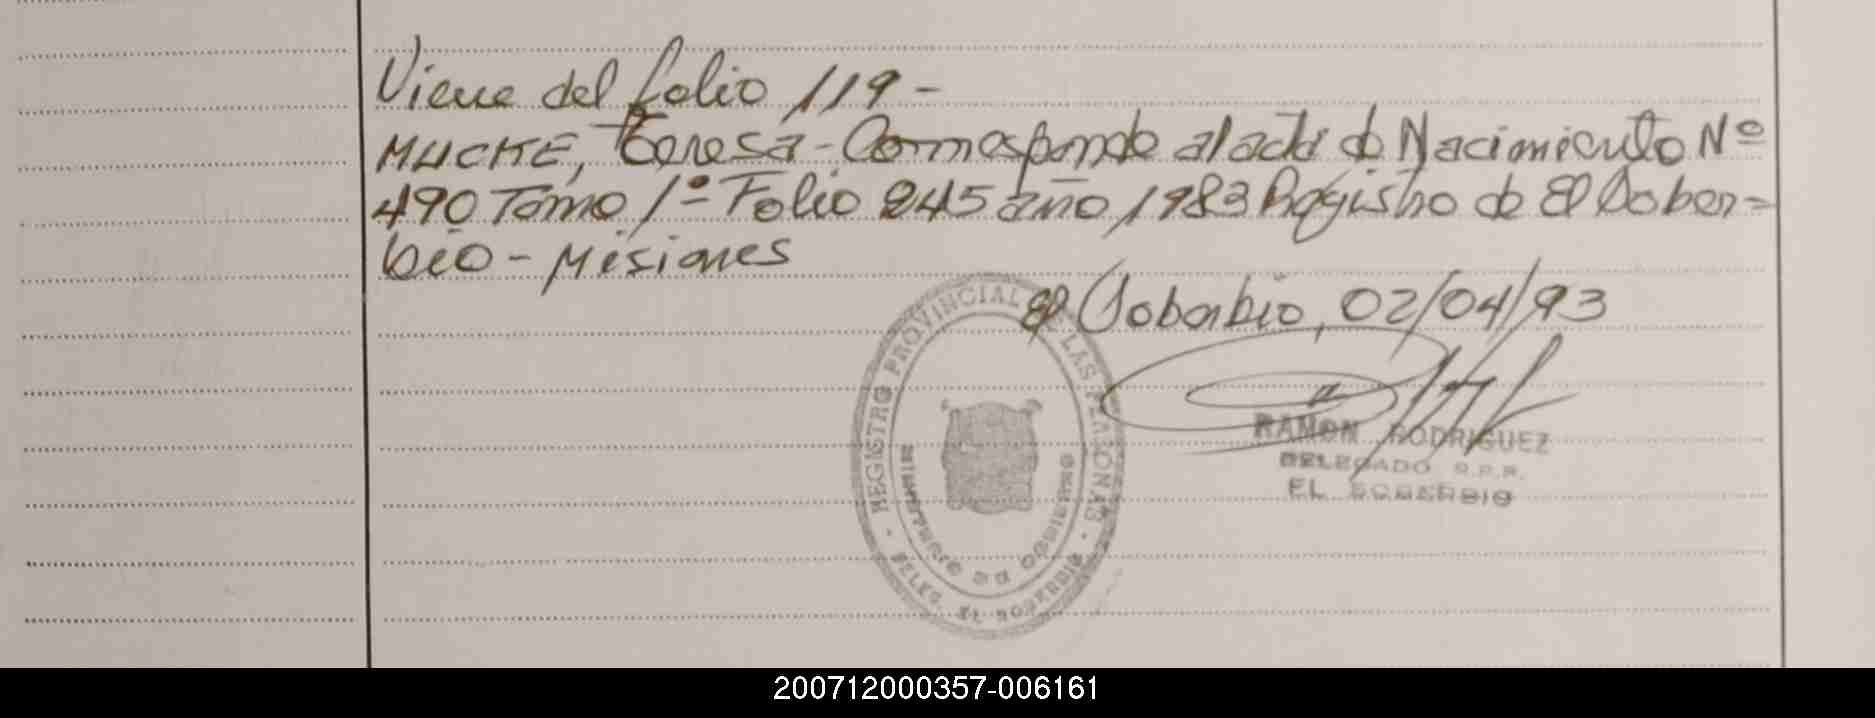 Viene del folio 119 -
MUCKE, Teresa - Corresponde al acta de Nacimiento Nº
490 Tomo 1º Folio 245 año 1983 Registro de El Sober-
bio - Misiones
El Soberbio, 02/04/93
REGISTRO PROVINCIAL DE LAS PERSONAS
DELEG. EL SOBERBIO
RAMON RODRIGUEZ
DELEGADO R.P.P.
EL SOBERBIO
200712000357-006161